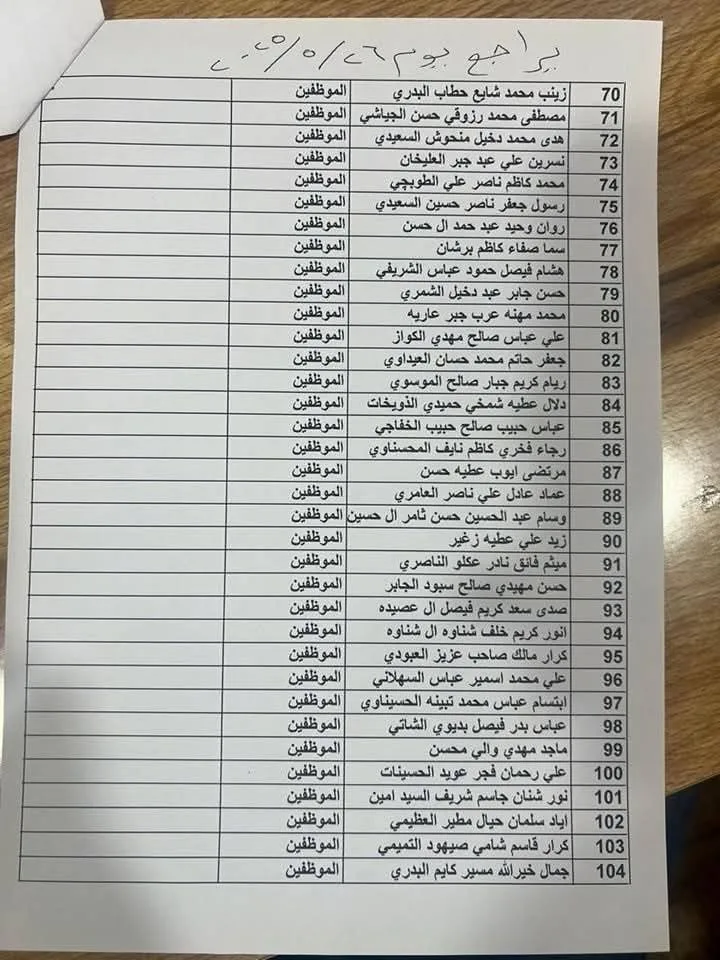 يراجع يوم ٢٦/٥/٢٠٢٥
70 زينب محمد شايع حطاب البدري الموظفين
71 مصطفى محمد رزوقي حسن الجياشي الموظفين
72 هدى محمد دخيل منحوش السعيدي الموظفين
73 نسرين علي عبد جبر العليخان الموظفين
74 محمد كاظم ناصر علي الطوبچي الموظفين
75 رسول جعفر ناصر حسين السعيدي الموظفين
76 روان وحيد عبد حمد ال حسن الموظفين
77 سما صفاء كاظم برشان الموظفين
78 هشام فيصل حمود عباس الشريفي الموظفين
79 حسن جابر عبد دخيل الشمري الموظفين
80 محمد مهنه عرب جبر عاريه الموظفين
81 علي عباس صالح مهدي الكواز الموظفين
82 جعفر حاتم محمد حسان العيداوي الموظفين
83 ريام كريم جبار صالح الموسوي الموظفين
84 دلال عطيه شمخي حميدي الذويخات الموظفين
85 عباس حبيب صالح حبيب الخفاجي الموظفين
86 رجاء فخري كاظم نايف المحسناوي الموظفين
87 مرتضى ايوب عطيه حسن الموظفين
88 عماد عادل علي ناصر العامري الموظفين
89 وسام عبد الحسين حسن ثامر ال حسين الموظفين
90 زيد علي عطيه زغير الموظفين
91 ميثم فائق نادر عكلو الناصري الموظفين
92 حسن مهيدي صالح سبود الجابر الموظفين
93 صدى سعد كريم فيصل ال عصيده الموظفين
94 انور كريم خلف شناوه ال شناوه الموظفين
95 كرار مالك صاحب عزيز العبودي الموظفين
96 علي محمد اسمير عباس السهلاني الموظفين
97 ابتسام عباس محمد تبينه الحسيناوي الموظفين
98 عباس بدر فيصل بديوي الشاتي الموظفين
99 ماجد مهدي والي محسن الموظفين
100 علي رحمان فجر عويد الحسينات الموظفين
101 نور شنان جاسم شريف السيد امين الموظفين
102 اياد سلمان حيال مطير العظيمي الموظفين
103 كرار قاسم شامي صيهود التميمي الموظفين
104 جمال خيرالله مسير كايم البدري الموظفين